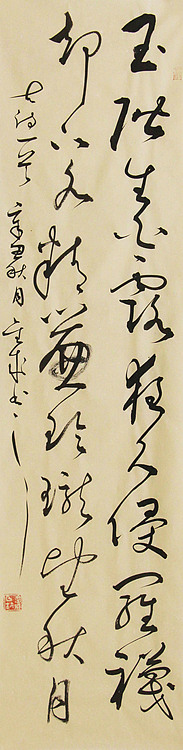 玉階生白露夜久侵羅襪
却下水精簾玲瓏望秋月
詩一首 辛丑秋月 書